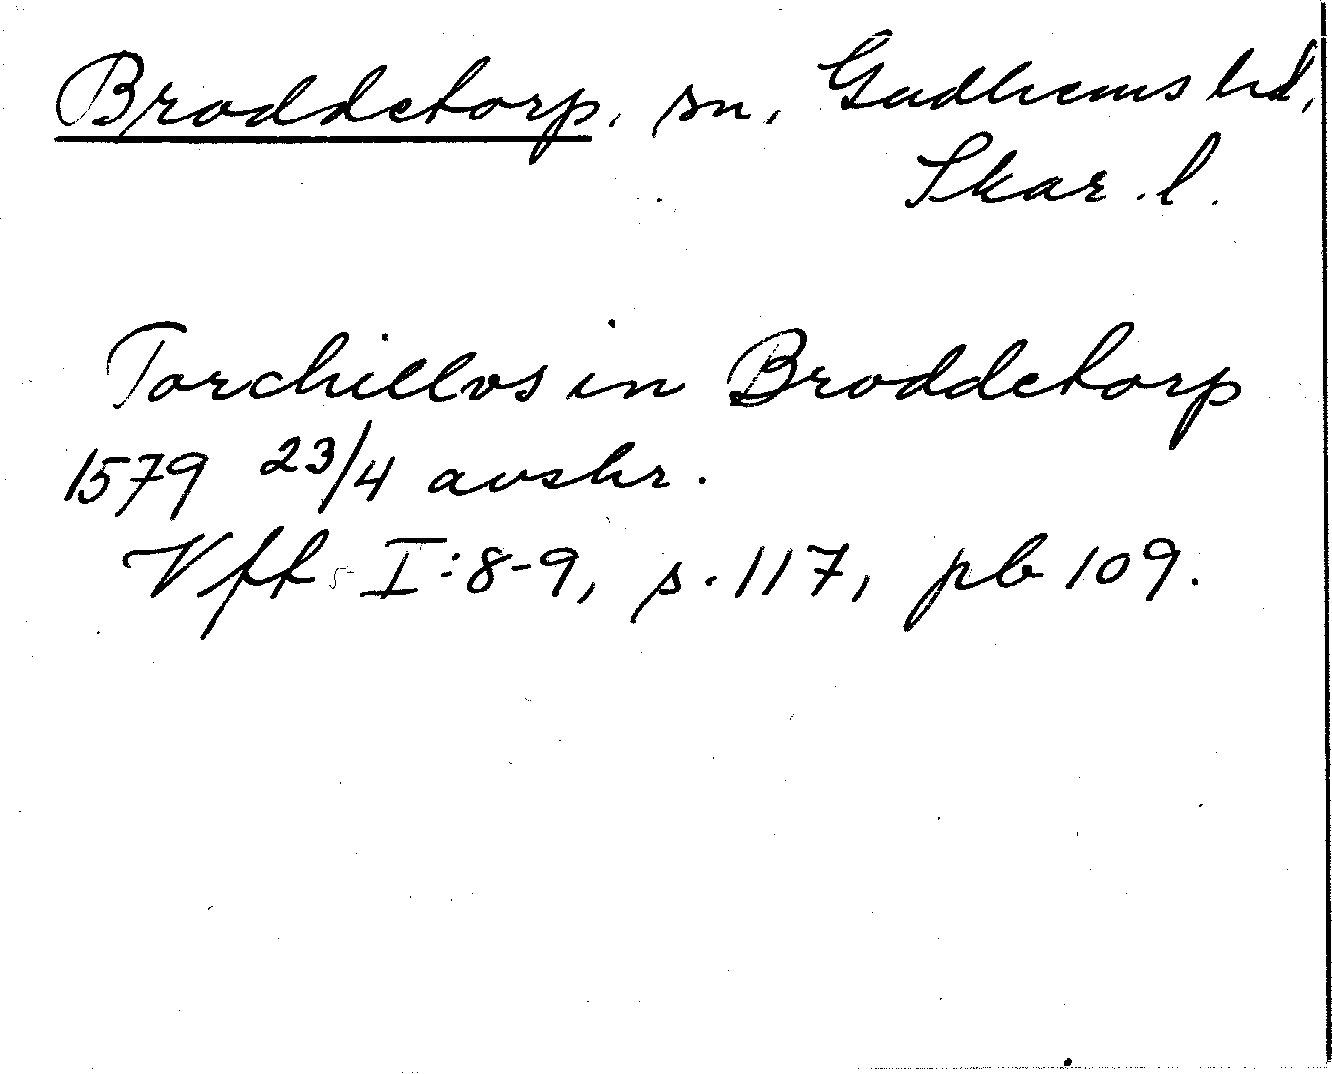 Broddetorp, sn, Gudhems hd,
Skar. l.
Torchillvs in Broddetorp
1579 23/4 avskr.
Vft I:8-9, s. 117, pb 109.